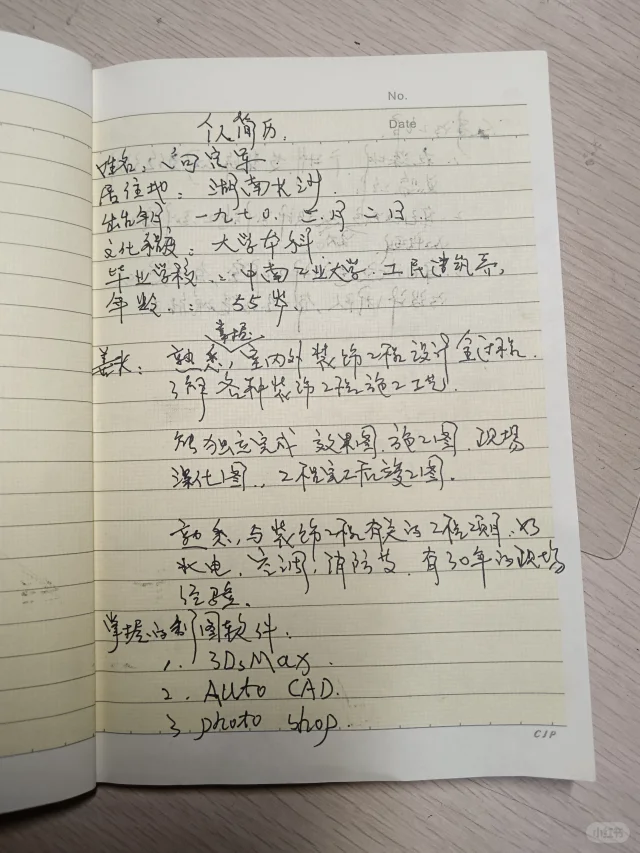 No.
Date
个人简历.
姓名、向完军.
居住地: 湖南长沙.
出生年月 一九七〇. 二月二日
文化程度: 大学本科.
毕业学校: 中南工业大学. 工民建筑系,
年龄: 55岁
掌握
善长: 熟悉, 室内外装饰工程设计全过程.
了解各种装饰工程施工工艺.
能独立完成 效果图. 施工图. 现场
深化图., 工程完工后竣工图.
熟悉, 与装饰工程有关的工程项目. 如
水电, 空调, 消防等. 有30年的现场
经验.
掌握的制图软件:
1. 3DsMax.
2. Auto CAD.
3. photo shop.
CJP
小红书